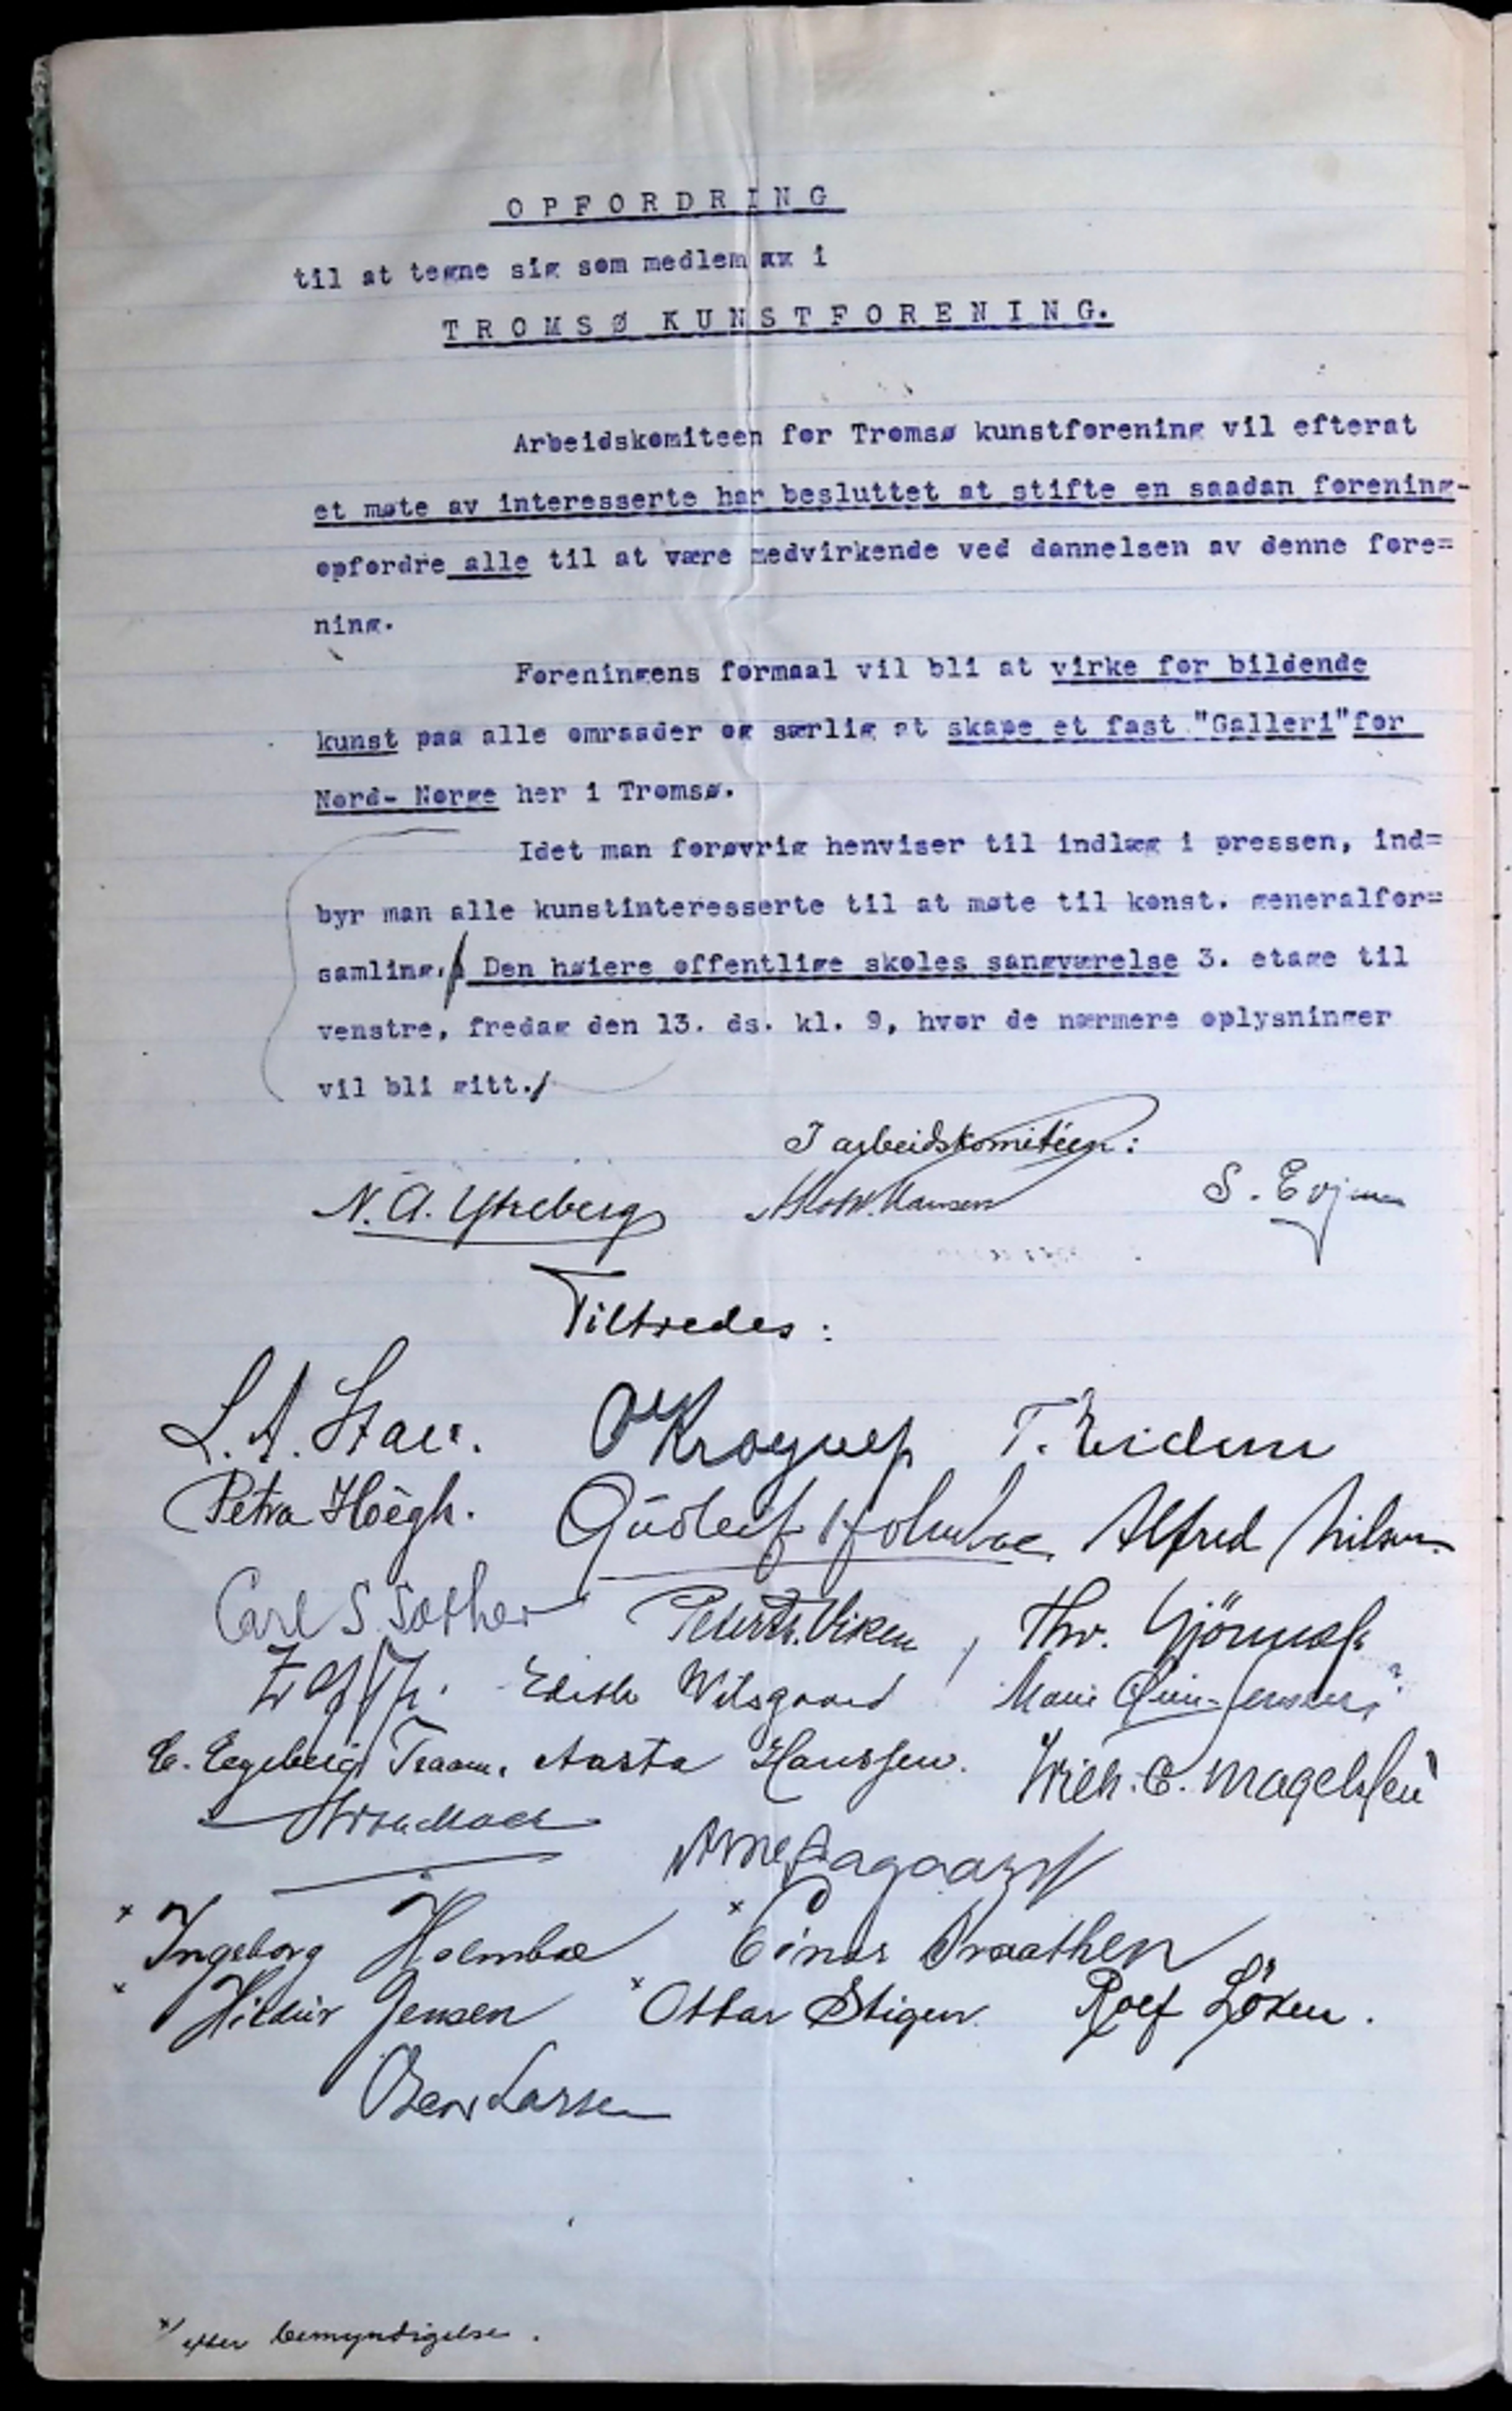 OPFORDRING
til at tegne sig som medlem xx i
TROMSØ KUNSTFORENING.
Arbeidskomiteen for Tromsø kunstforening vil efterat
et møte av interesserte har besluttet at stifte en saadan forening-
opfordre alle til at være medvirkende ved dannelsen av denne fore=
ning.
Foreningens formaal vil bli at virke for bildende
kunst paa alle omraader og særlig at skape et fast "Galleri" for
Nord- Norge her i Tromsø.
Idet man forøvrig henviser til indlæg i pressen, ind=
byr man alle kunstinteresserte til at møte til konst. generalfor=
samling. Den høiere offentlige skoles sangværelse 3. etage til
venstre, fredag den 13. ds. kl. 9, hvor de nærmere oplysninger
vil bli gitt.
I arbeidskomitéen:
N. A. Ytreberg Hansen S. Evjen
Tiltredes:
L. A. Krogrup T. Eidem
Petra Höegh. Gudleif Holmboe. Alfred Nilsen
Carl S. Sæther Viken Thr.
Edith Witsgaard Marie Jensen
E. Engeberg Traam. Aasta Hanssen. Wilh. C. Magelssen
Arne
x Ingeborg Holmboe x Einar Braathen
x Hildur Jensen x Ottar Stigen Rolf Löken.
Larsen
x/ efter bemyndigelse.